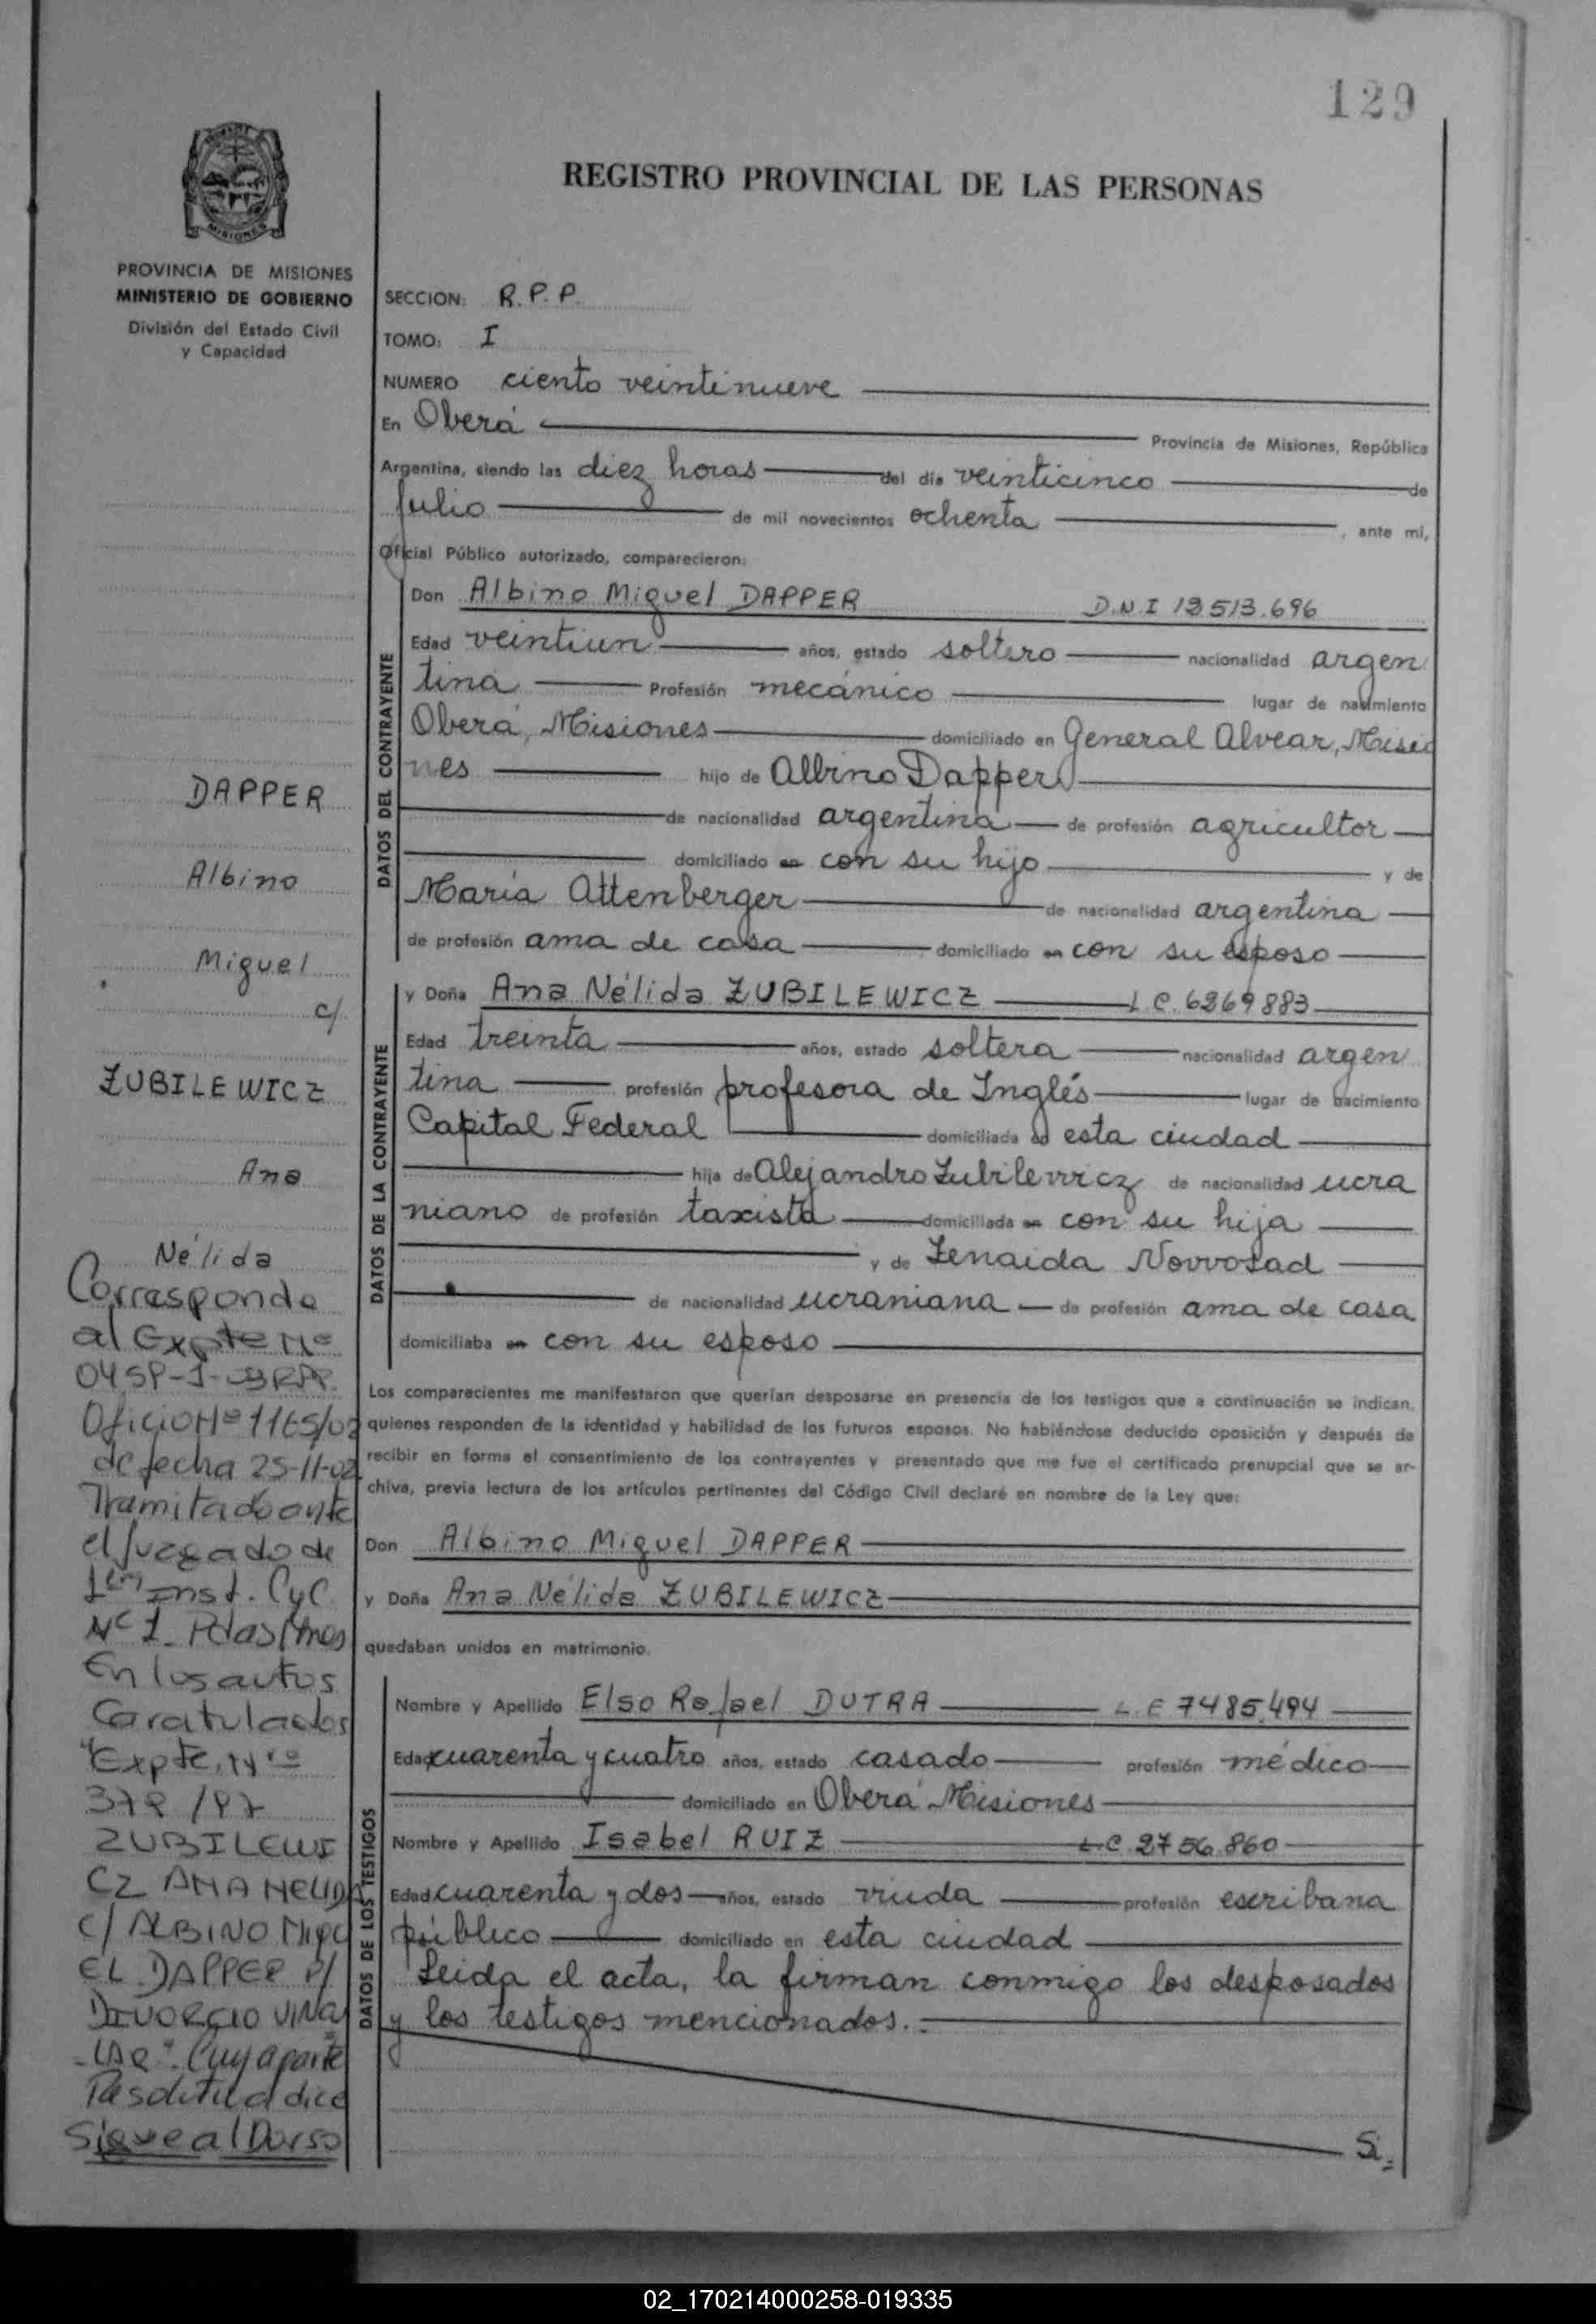 129
REGISTRO PROVINCIAL DE LAS PERSONAS
MISIONES
PROVINCIA DE MISIONES
MINISTERIO DE GOBIERNO
División del Estado Civil
y Capacidad
SECCION: R.P.P.
TOMO: I
NUMERO ciento veintinueve
En Oberá Provincia de Misiones, República
Argentina, siendo las diez horas del día veinticinco de
Julio de mil novecientos ochenta, ante mi,
Oficial Público autorizado, comparecieron:
DATOS DEL CONTRAYENTE
Don Albino Miguel DAPPER D.N.I 13513.696
Edad veintiun años, estado soltero nacionalidad argen
tina Profesión mecánico lugar de nacimiento
Oberá, Misiones domiciliado en General Alvear, Misio
nes hijo de Albino Dapper
de nacionalidad argentina de profesión agricultor
domiciliado en con su hijo y de
María Attenberger de nacionalidad argentina
de profesión ama de casa domiciliado en con su esposo
DATOS DE LA CONTRAYENTE
y Doña Ana Nélida ZUBILEWICZ L.C. 6269883
Edad treinta años, estado soltera nacionalidad argen
tina profesión profesora de Inglés lugar de nacimiento
Capital Federal domiciliada en esta ciudad
hija de Alejandro Zubilewicz de nacionalidad ucra
niano de profesión taxista domiciliada en con su hija
y de Zenaida Novvosad
de nacionalidad ucraniana de profesión ama de casa
domiciliaba en con su esposo
Los comparecientes me manifestaron que querían desposarse en presencia de los testigos que a continuación se indican,
quienes responden de la identidad y habilidad de los futuros esposos. No habiéndose deducido oposición y después de
recibir en forma el consentimiento de los contrayentes y presentado que me fue el certificado prenupcial que se ar-
chiva, previa lectura de los artículos pertinentes del Código Civil declaré en nombre de la Ley que:
Don Albino Miguel DAPPER
y Doña Ana Nélida ZUBILEWICZ
quedaban unidos en matrimonio.
DATOS DE LOS TESTIGOS
Nombre y Apellido Elso Rafael DUTRA L.E 7485.494
Edad cuarenta y cuatro años, estado casado profesión médico
domiciliado en Oberá Misiones
Nombre y Apellido Isabel RUIZ L.C. 2756.860
Edad cuarenta y dos años, estado viuda profesión escribana
público domiciliado en esta ciudad
Leida el acta, la firman conmigo los desposados
y los testigos mencionados.-
Si
DAPPER
Albino
Miguel
c/.
ZUBILEWICZ
Ana
Nélida
Corresponde
al Expte Nº
Oficio Nº 1165/02
de fecha 25-11-02
Tramitado ante
el Juzgado de
1era Inst. CyC.
Nº 1. Pdas Mnes
En los autos
Caratulados
"Expte. Nro
ZUBILEWI
CZ ANA NELIDA
C/ ALBINO MIGU
EL DAPPER P/
DIVORCIO VINCU
-LAR". Cuya parte
Resolutiva dice
Sigue al Dorso
02_170214000258-019335